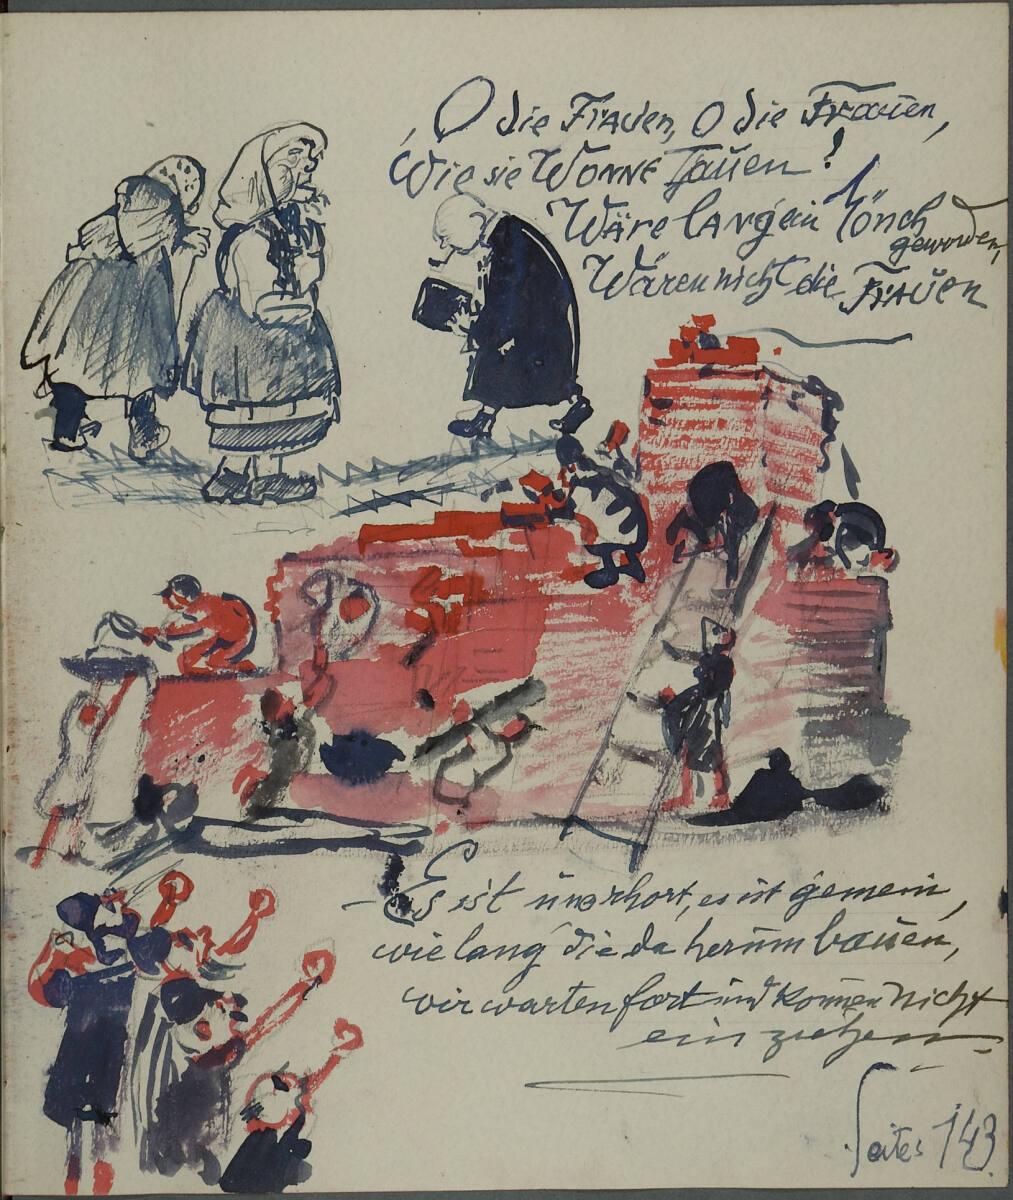 O die Frauen, O die Frauen,
Wie sie Wonne Tauen!
Wäre lang ein Mönch
geworden,
Wären nicht die Frauen
Es ist unerhort, es ist gemein,
wie lang die da herum bauen,
wir warten fort und konnen nicht
ein ziehen.
Seite: 143.